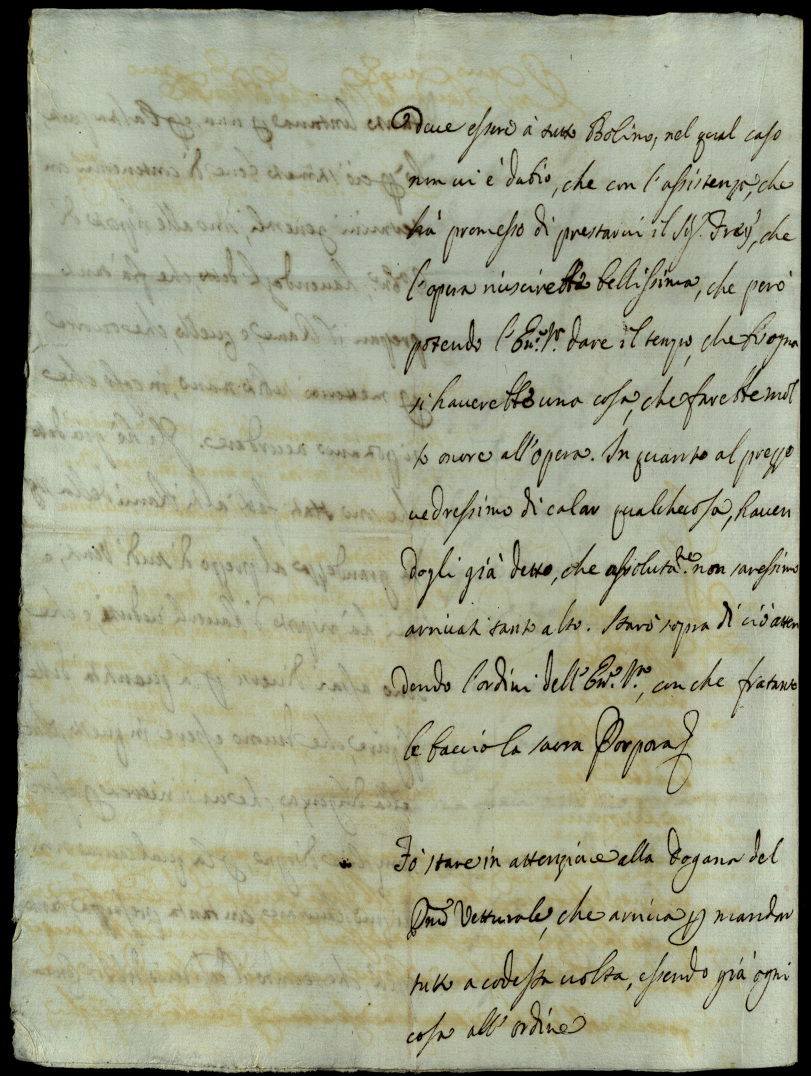 deue essere à tutto Bolino, nel qual caso
non ui è dubio, che con l'assistenza, che
hà promesso di prestarui il Sig.r Frey, che
l'opera riuscirebbe bellissima, che però
potendo l'Em.a V.ra dare il tempo, che bisogna
si hauerebbe una cosa, che farebbe mol
to onore all'opera. In quanto al prezzo
uedressimo di calar qualche cosa, hauen
dogli già detto, che assolutam.te non saressimo
arriuati tanto alto. Starò sopra di ciò atten
dendo l'ordini dell'Em.a V.ra, con che fratanto
le baccio la sacra Porpora
Fò stare in attenzione alla Dogana del
P.mo Vetturale, che arriua p mandar
tutto a codesta uolta, essendo già ogni
cosa all'ordine